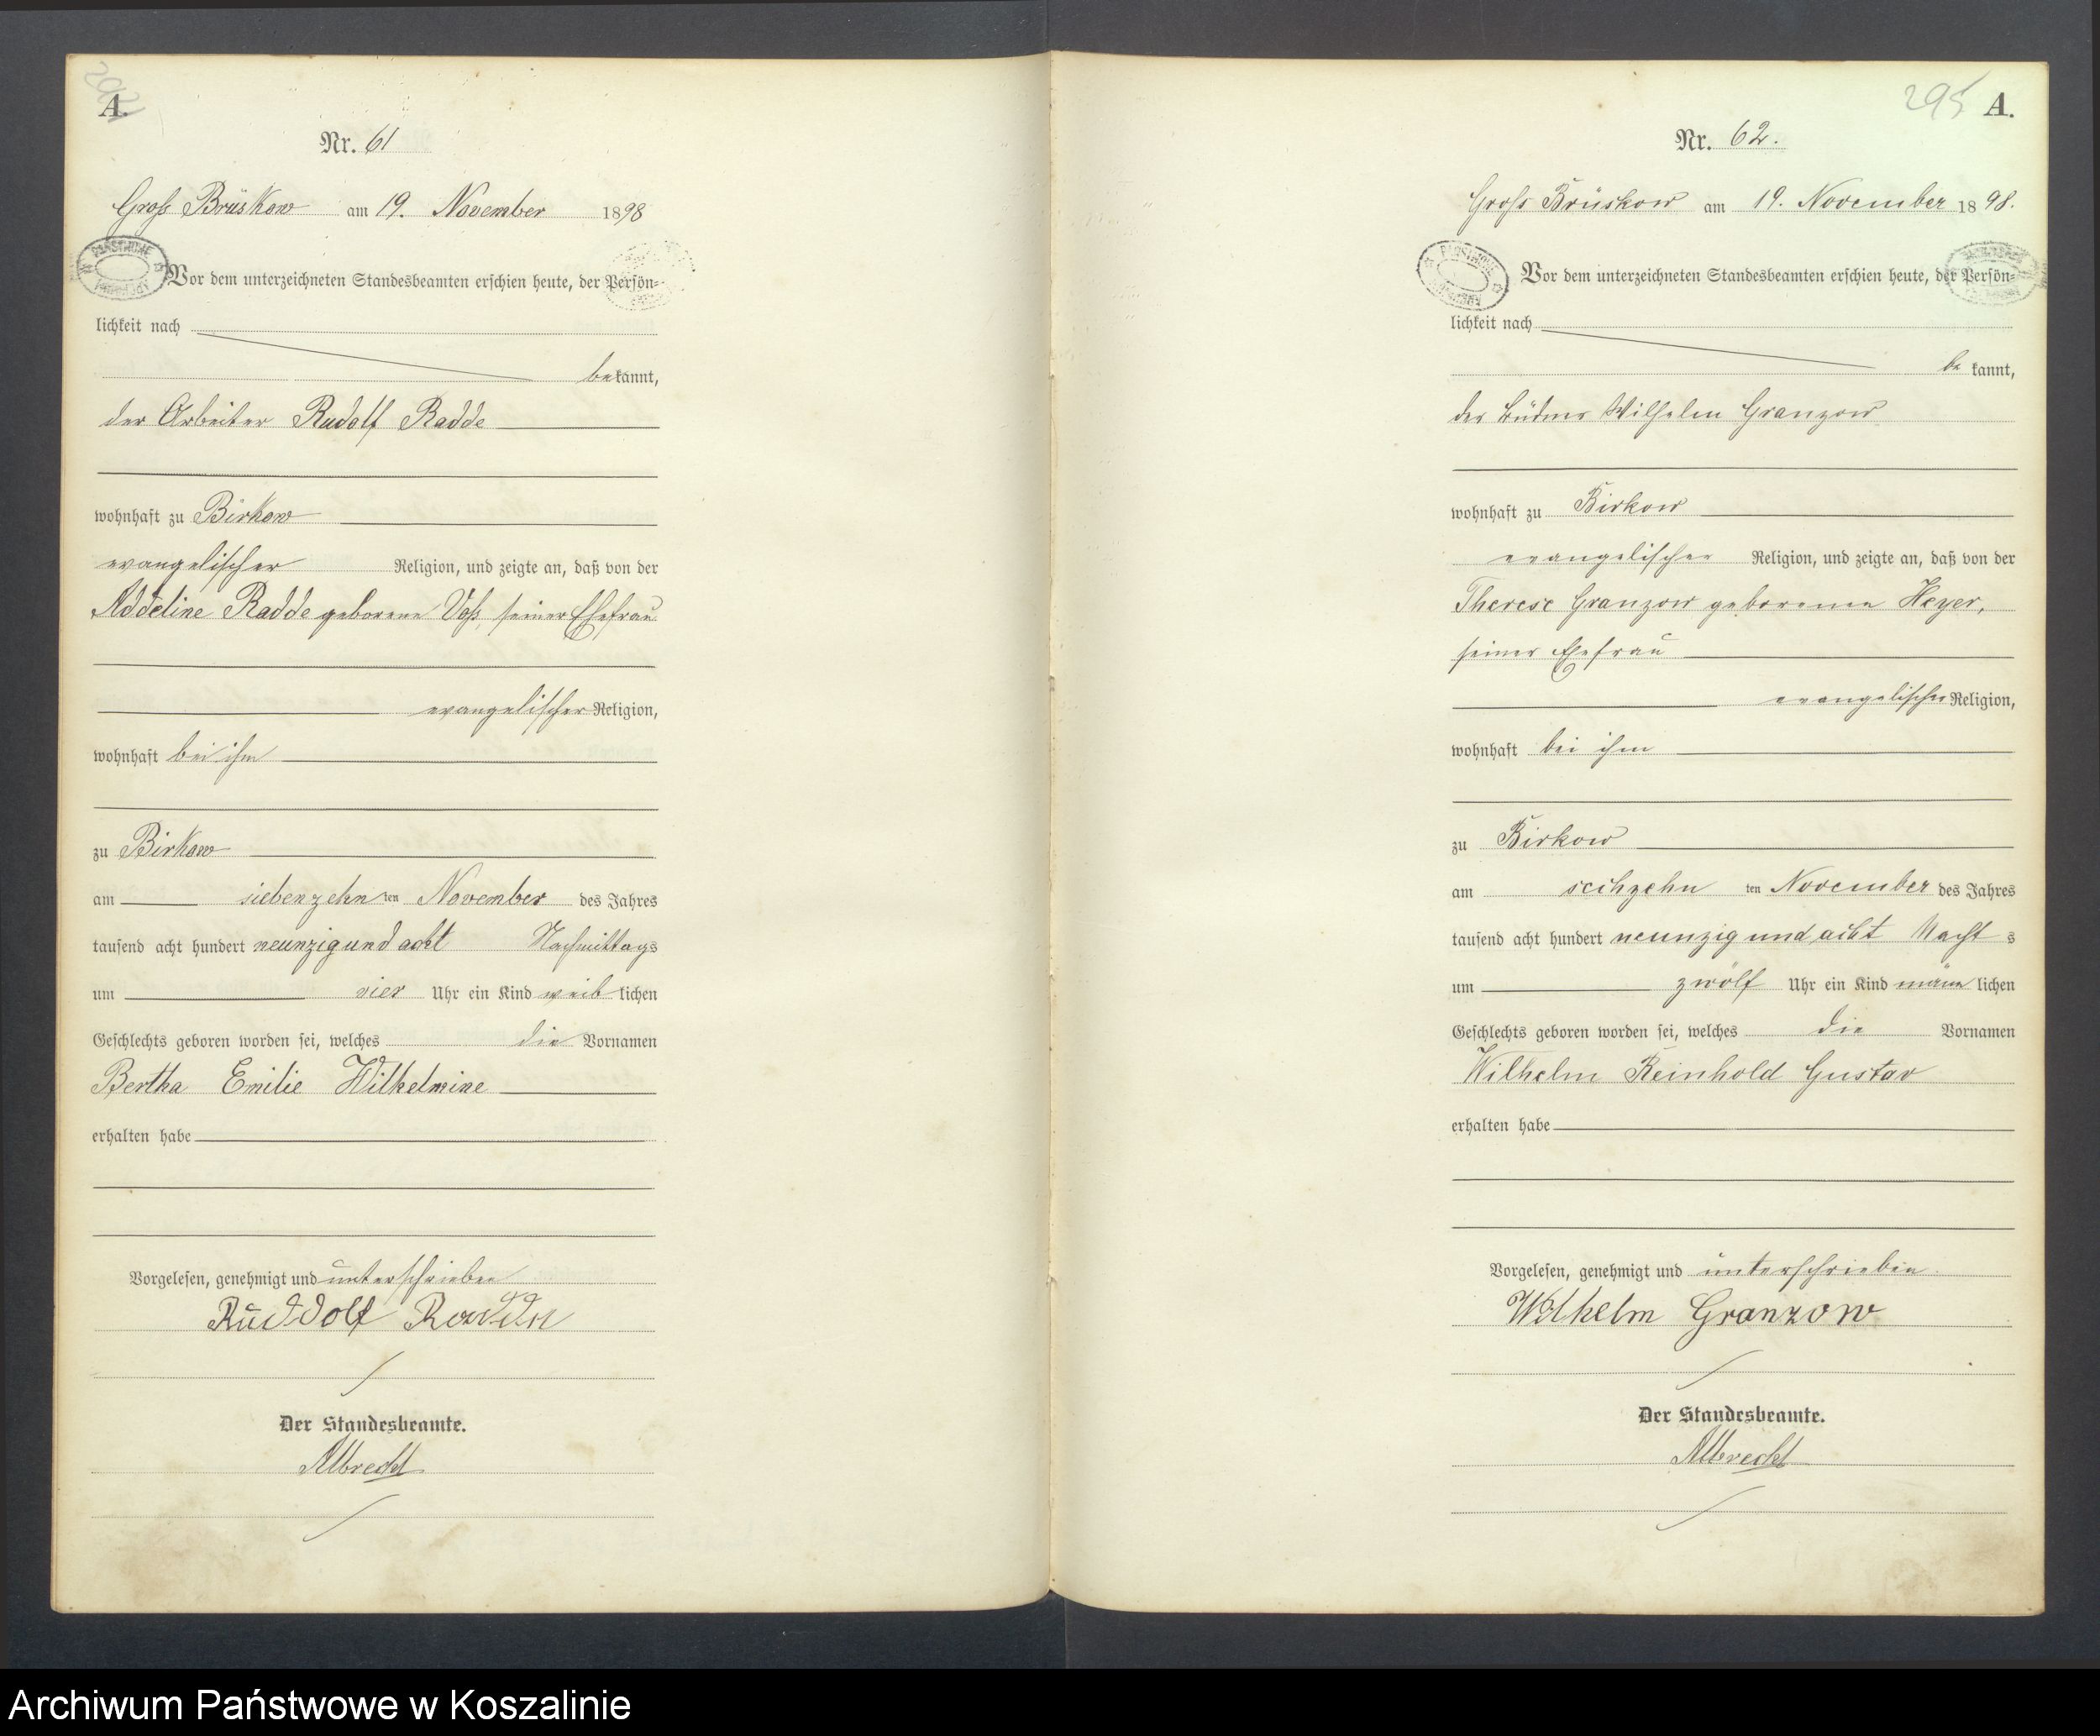 A.
Nr. 61
Gross Brüskow am 19. November 1898
Vor dem unterzeichneten Standesbeamten erschien heute, der Persön-
lichkeit nach
bekannt,
der Arbeiter Rudolf Radde
wohnhaft zu Birkow
evangelischer Religion, und zeigte an, daß von der
Addeline Radde geborene Voß, seiner Ehefrau
evangelischer Religion,
wohnhaft bei ihm
zu Birkow
am siebenzehn ten November des Jahres
tausend acht hundert neunzig und acht Nachmittags
um vier Uhr ein Kind weiblichen
Geschlechts geboren worden sei, welches die Vornamen
Bertha Emilie Wilhelmine
erhalten habe
Vorgelesen, genehmigt und unterschrieben
Ruddolf Radde
Der Standesbeamte.
Albrecht
295 A.
Nr. 62.
Gross Brüskow am 19. November 1898.
Vor dem unterzeichneten Standesbeamten erschien heute, der Persön-
lichkeit nach
bekannt,
der Büdner Wilhelm Granzow
wohnhaft zu Birkow
evangelischer Religion, und zeigte an, daß von der
Therese Granzow geborenen Heyer,
seiner Ehefrau
evangelischer Religion,
wohnhaft bei ihm
zu Birkow
am sechzehn ten November des Jahres
tausend acht hundert neunzig und acht Nachts
um zwölf Uhr ein Kind männlichen
Geschlechts geboren worden sei, welches die Vornamen
Wilhelm Reinhold Gustav
erhalten habe
Vorgelesen, genehmigt und unterschrieben
Wilhelm Granzow
Der Standesbeamte.
Albrecht
Archiwum Państwowe w Koszalinie